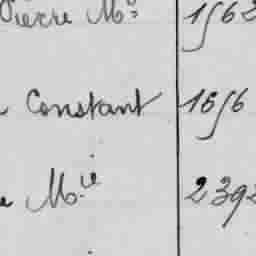 Pierre M.ᵉ 1562
Constant 1656
M.ⁱᵉ 2392